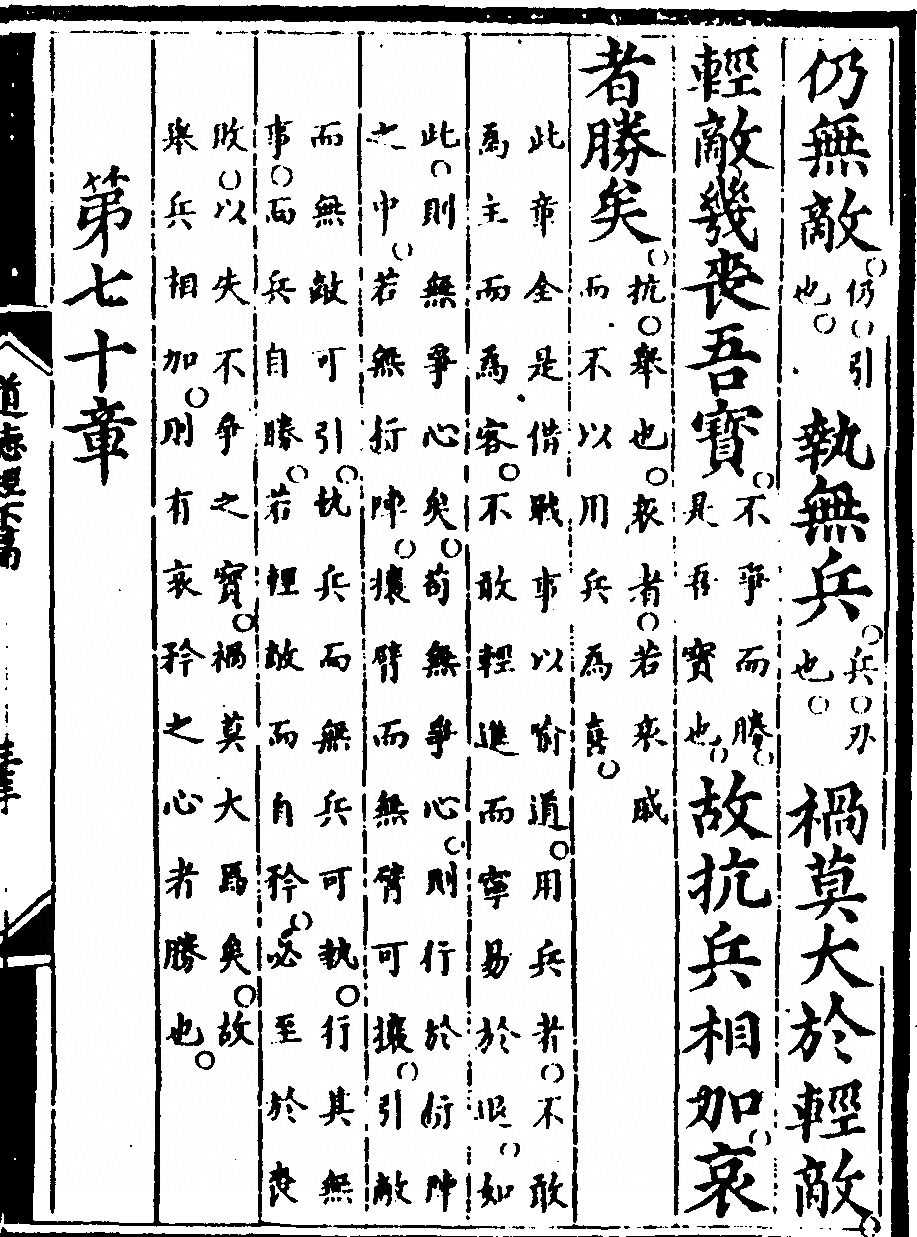 仍無敵。仍。引也。執無兵。兵。刃也。禍莫大於輕敵。
輕敵幾喪吾寶。不爭而勝。是吾寶也。故抗兵相加。哀
者勝矣。抗。舉也。哀者。若哀戚而不以用兵為喜。
此章全是借戰事以喻道。用兵者。不敢
為主而為客。不敢輕進而寧易於退。如
此。則無爭心矣。苟無爭心。則行於行陣
之中。若無行陣。攘臂而無臂可攘。引敵
而無敵可引。執兵而無兵可執。行其無
事。而兵自勝。若輕敵而自矜。必至於喪
敗。以失不爭之寶。禍莫大焉矣。故
舉兵相加。則有哀矜之心者勝也。
第七十章
道德經下篇